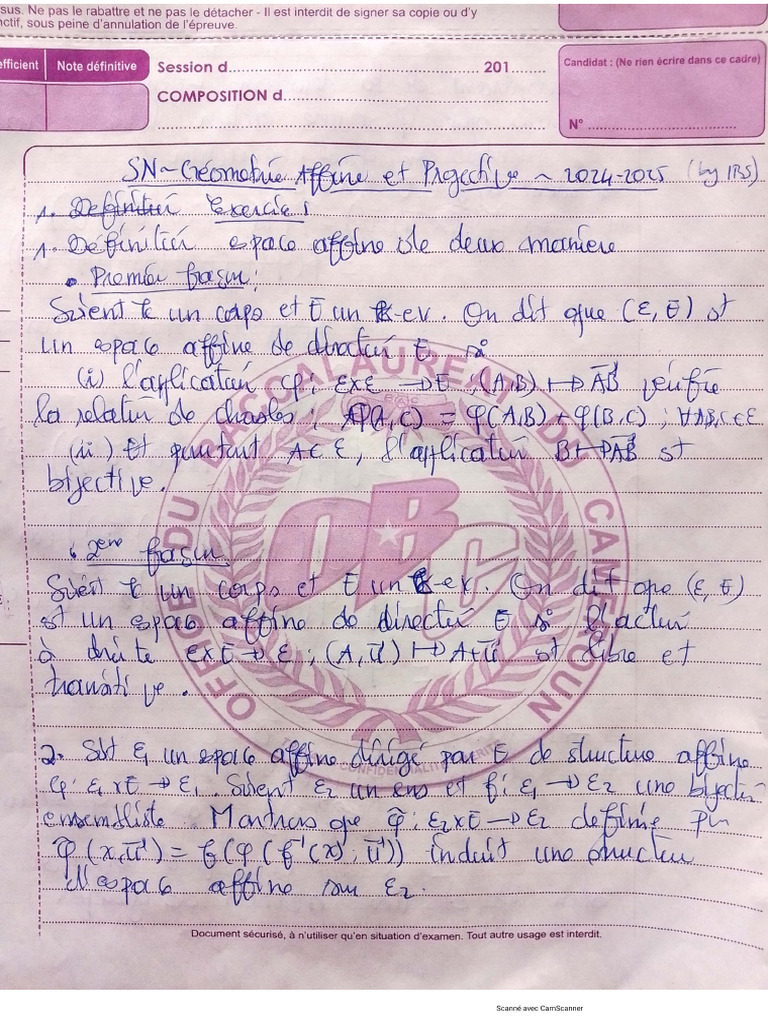 sus. Ne pas le rabattre et ne pas le détacher - Il est interdit de signer sa copie ou d'y
nctif, sous peine d'annulation de l'épreuve.
efficient Note définitive Session d 201
Candidat : (Ne rien écrire dans ce cadre)
COMPOSITION d
N°
SN ~ Géométrie Affine et Projective ~ 2024-2025 (by IRS)
1. Définition Exercice 1
1. Définition espace affine de deux manière
• Premier façon :
Soient K un corps et E un K-ev. On dit que (E, E) st
un espace affine de direction E si
(i) l'application φ: ExE → E, (A,B) ↦ AB vérifie
la relation de chasles : φ(A,C) = φ(A,B) + φ(B,C) ; ∀A,B,C ∈ E
(ii) Et pourtant A ∈ E, l'application B ↦ AB st
bijective.
• 2eme façon
Soient K un corps et E un K-ev. On dit que (E, E)
st un espace affine de direction E si l'action
à droite ExE → E ; (A, u) ↦ A+u st libre et
transitive.
2. Soit E1 un espace affine dirigé par E de structure affine
φ: E1xE → E1. Soient E2 un ens et f: E1 → E2 une bijection
ensembliste. Montrons que φ̃: E2xE → E2 definie par
φ̃(x,u) = f(φ(f⁻¹(x), u)) induit une structure
d'espace affine sur E2.
OFFICE DU BACCALAUREAT DU CAMEROUN
OBC
CONFIDENTIALITE
Document sécurisé, à n'utiliser qu'en situation d'examen. Tout autre usage est interdit.
Scanné avec CamScanner